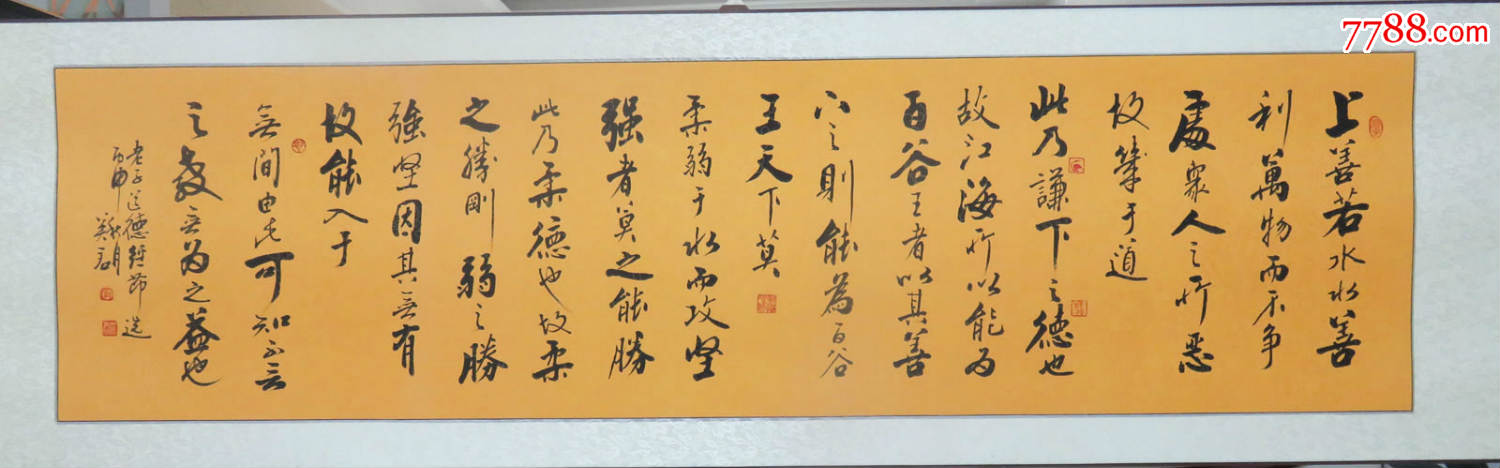 上善若水水善
利萬物而不争
處衆人之所恶
故幾于道
此乃謙下之德也
故江海所以能为
百谷王者以其善
下之則能為百谷
王天下莫
柔弱于水而攻坚
强者莫之能勝
此乃柔德也故柔
之勝剛弱之勝
強坚因其無有
故能入于
無間由此可知不言
之教無为之益也
老子道德经節选
丙申
7788.com